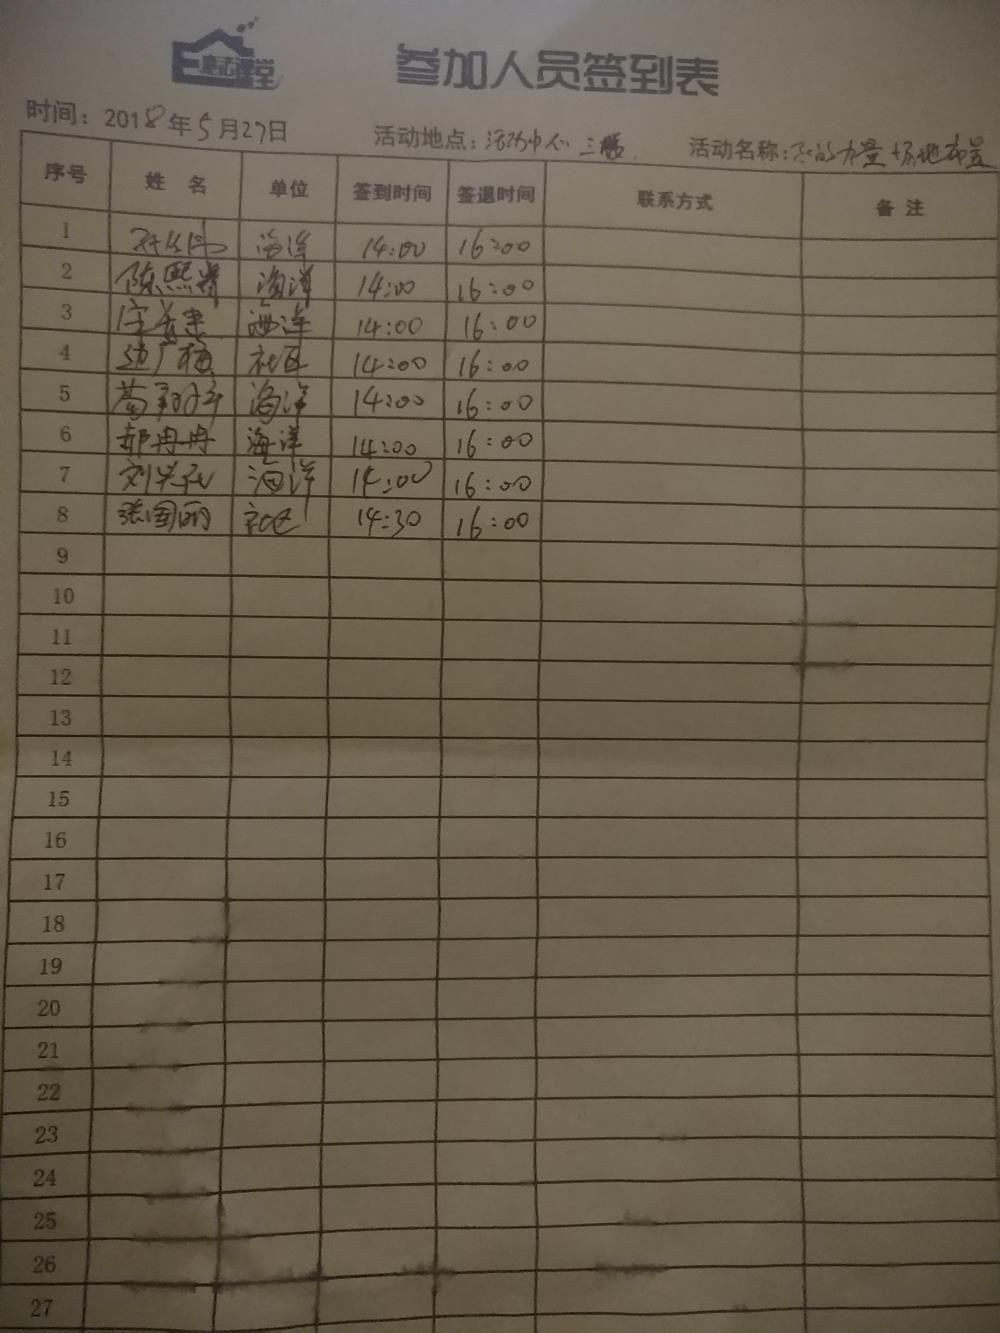 参加人员签到表
时间：2018年5月27日 活动地点：活动中心 三楼 活动名称：的力量 场地布置
序号 姓名 单位 签到时间 签退时间 联系方式 备注
1 海洋 14:00 16:00
2 陈熙 海洋 14:00 16:00
3 海洋 14:00 16:00
4 边广梅 社区 14:00 16:00
5 葛 海洋 14:00 16:00
6 郝冉冉 海洋 14:00 16:00
7 刘 海洋 14:00 16:00
8 张国丽 社区 14:30 16:00
9
10
11
12
13
14
15
16
17
18
19
20
21
22
23
24
25
26
27